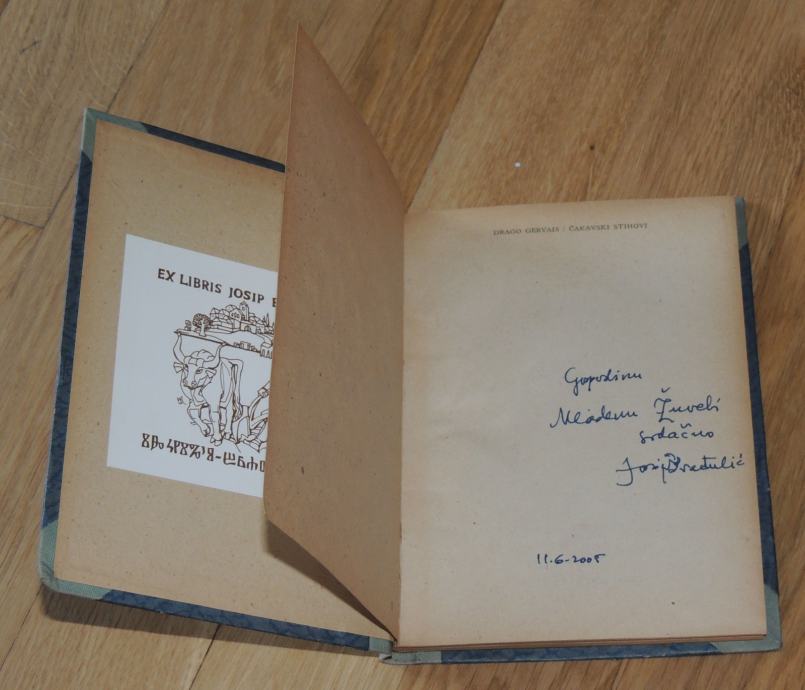 EX LIBRIS JOSIP
DRAGO GERVAIS / ČAKAVSKI STIHOVI
Gospodinu
Mladenu Žuveli
srdačno
Josip Bratulić
11.6-2005